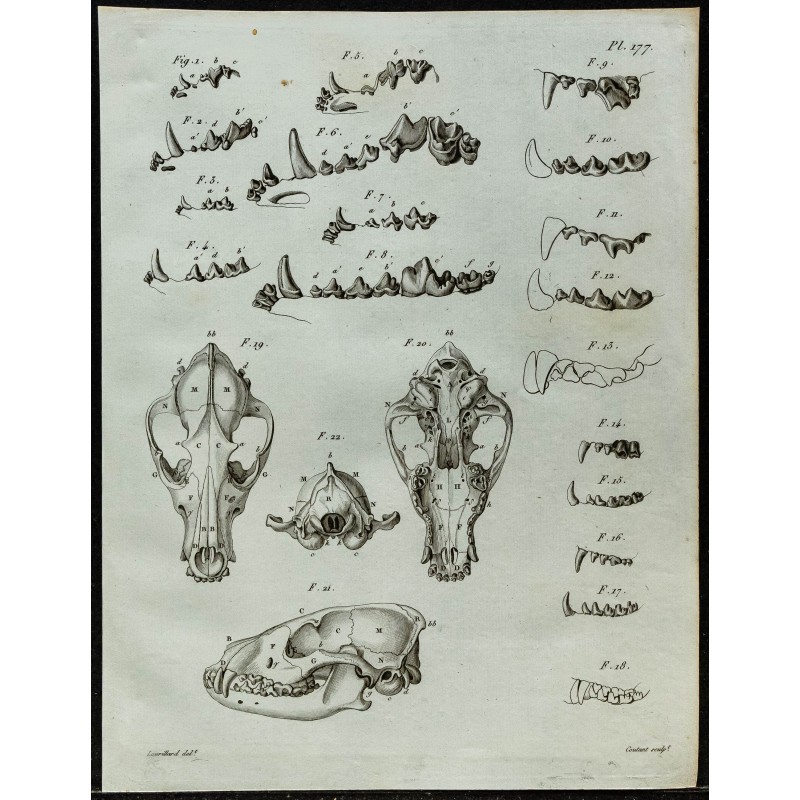 Pl. 177.
Fig. 1.
a b c
F. 2.
a' d b' c'
F. 3.
a b
F. 4.
a' d b'
F. 5.
a b c
F. 6.
d a' e b' c'
F. 7.
a b c
F. 8.
d a' e b' c' f g
F. 9.
F. 10.
F. 11.
F. 12.
F. 13.
F. 14.
F. 15.
F. 16.
F. 17.
F. 18.
F. 19.
bb
d
M M
N N
a C C a
b
G G
F F
B B
D
F. 20.
bb
d d
N N
L
f f
b b
k
H H
F F
D
F. 22.
b
M M
R
N N
k
c c
F. 21.
C R
bb
B F C M
b
G N
f
D
g c d
Laurillard del.t
Coutant sculp.t